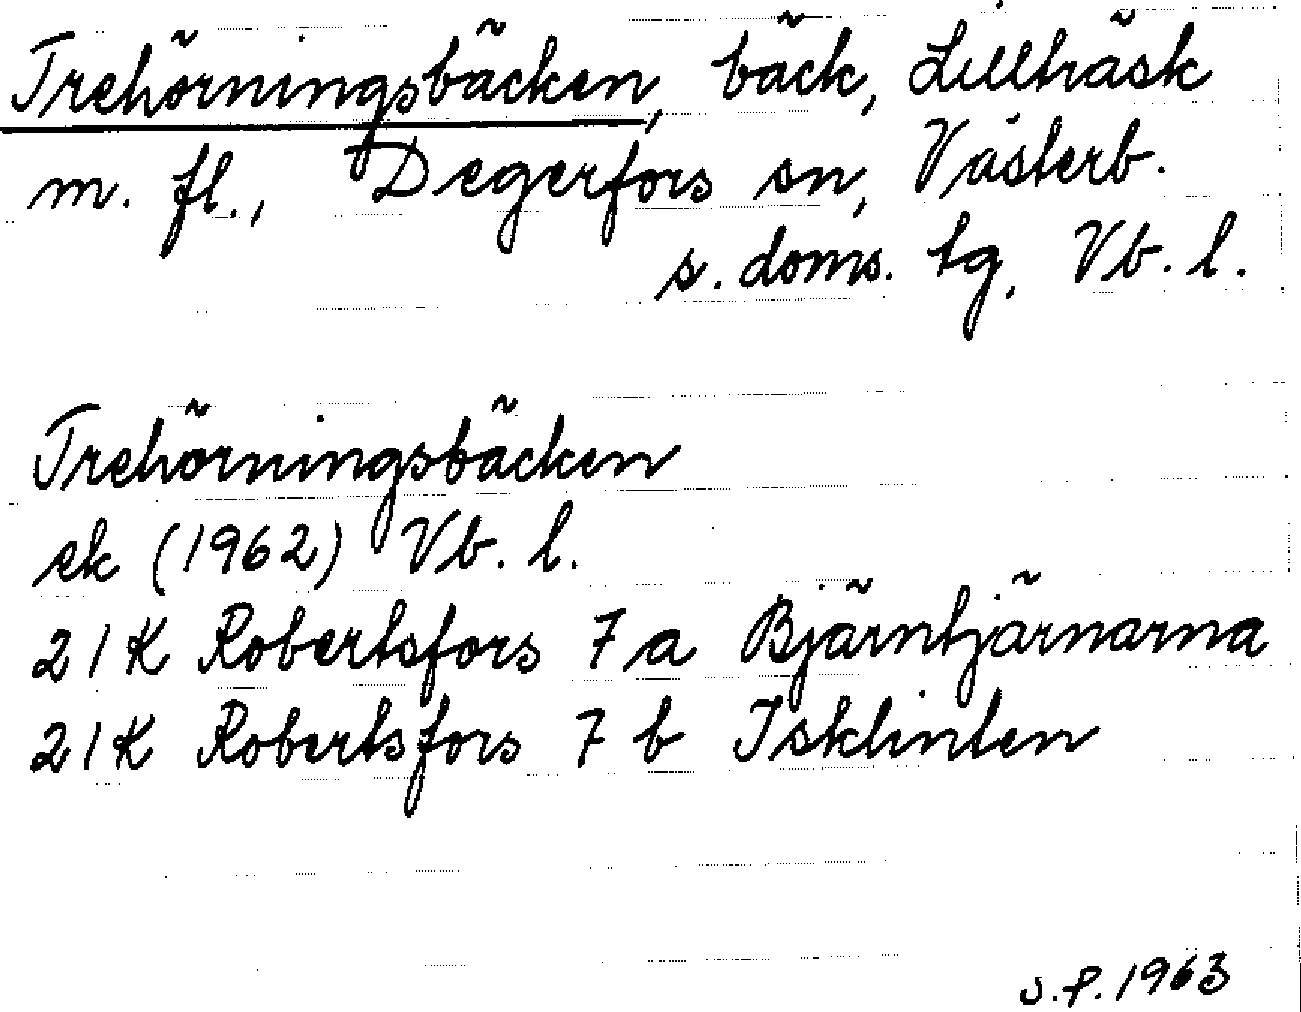 Trehörningsbäcken, bäck, Lillträsk
m. fl., Degerfors sn, Västerb.
s. doms. tg, Vb. l.
Trehörningsbäcken
ek (1962) Vb. l.
21K Robertsfors 7a Bjärntjärnarna
21K Robertsfors 7b Isklinten
S.P. 1963